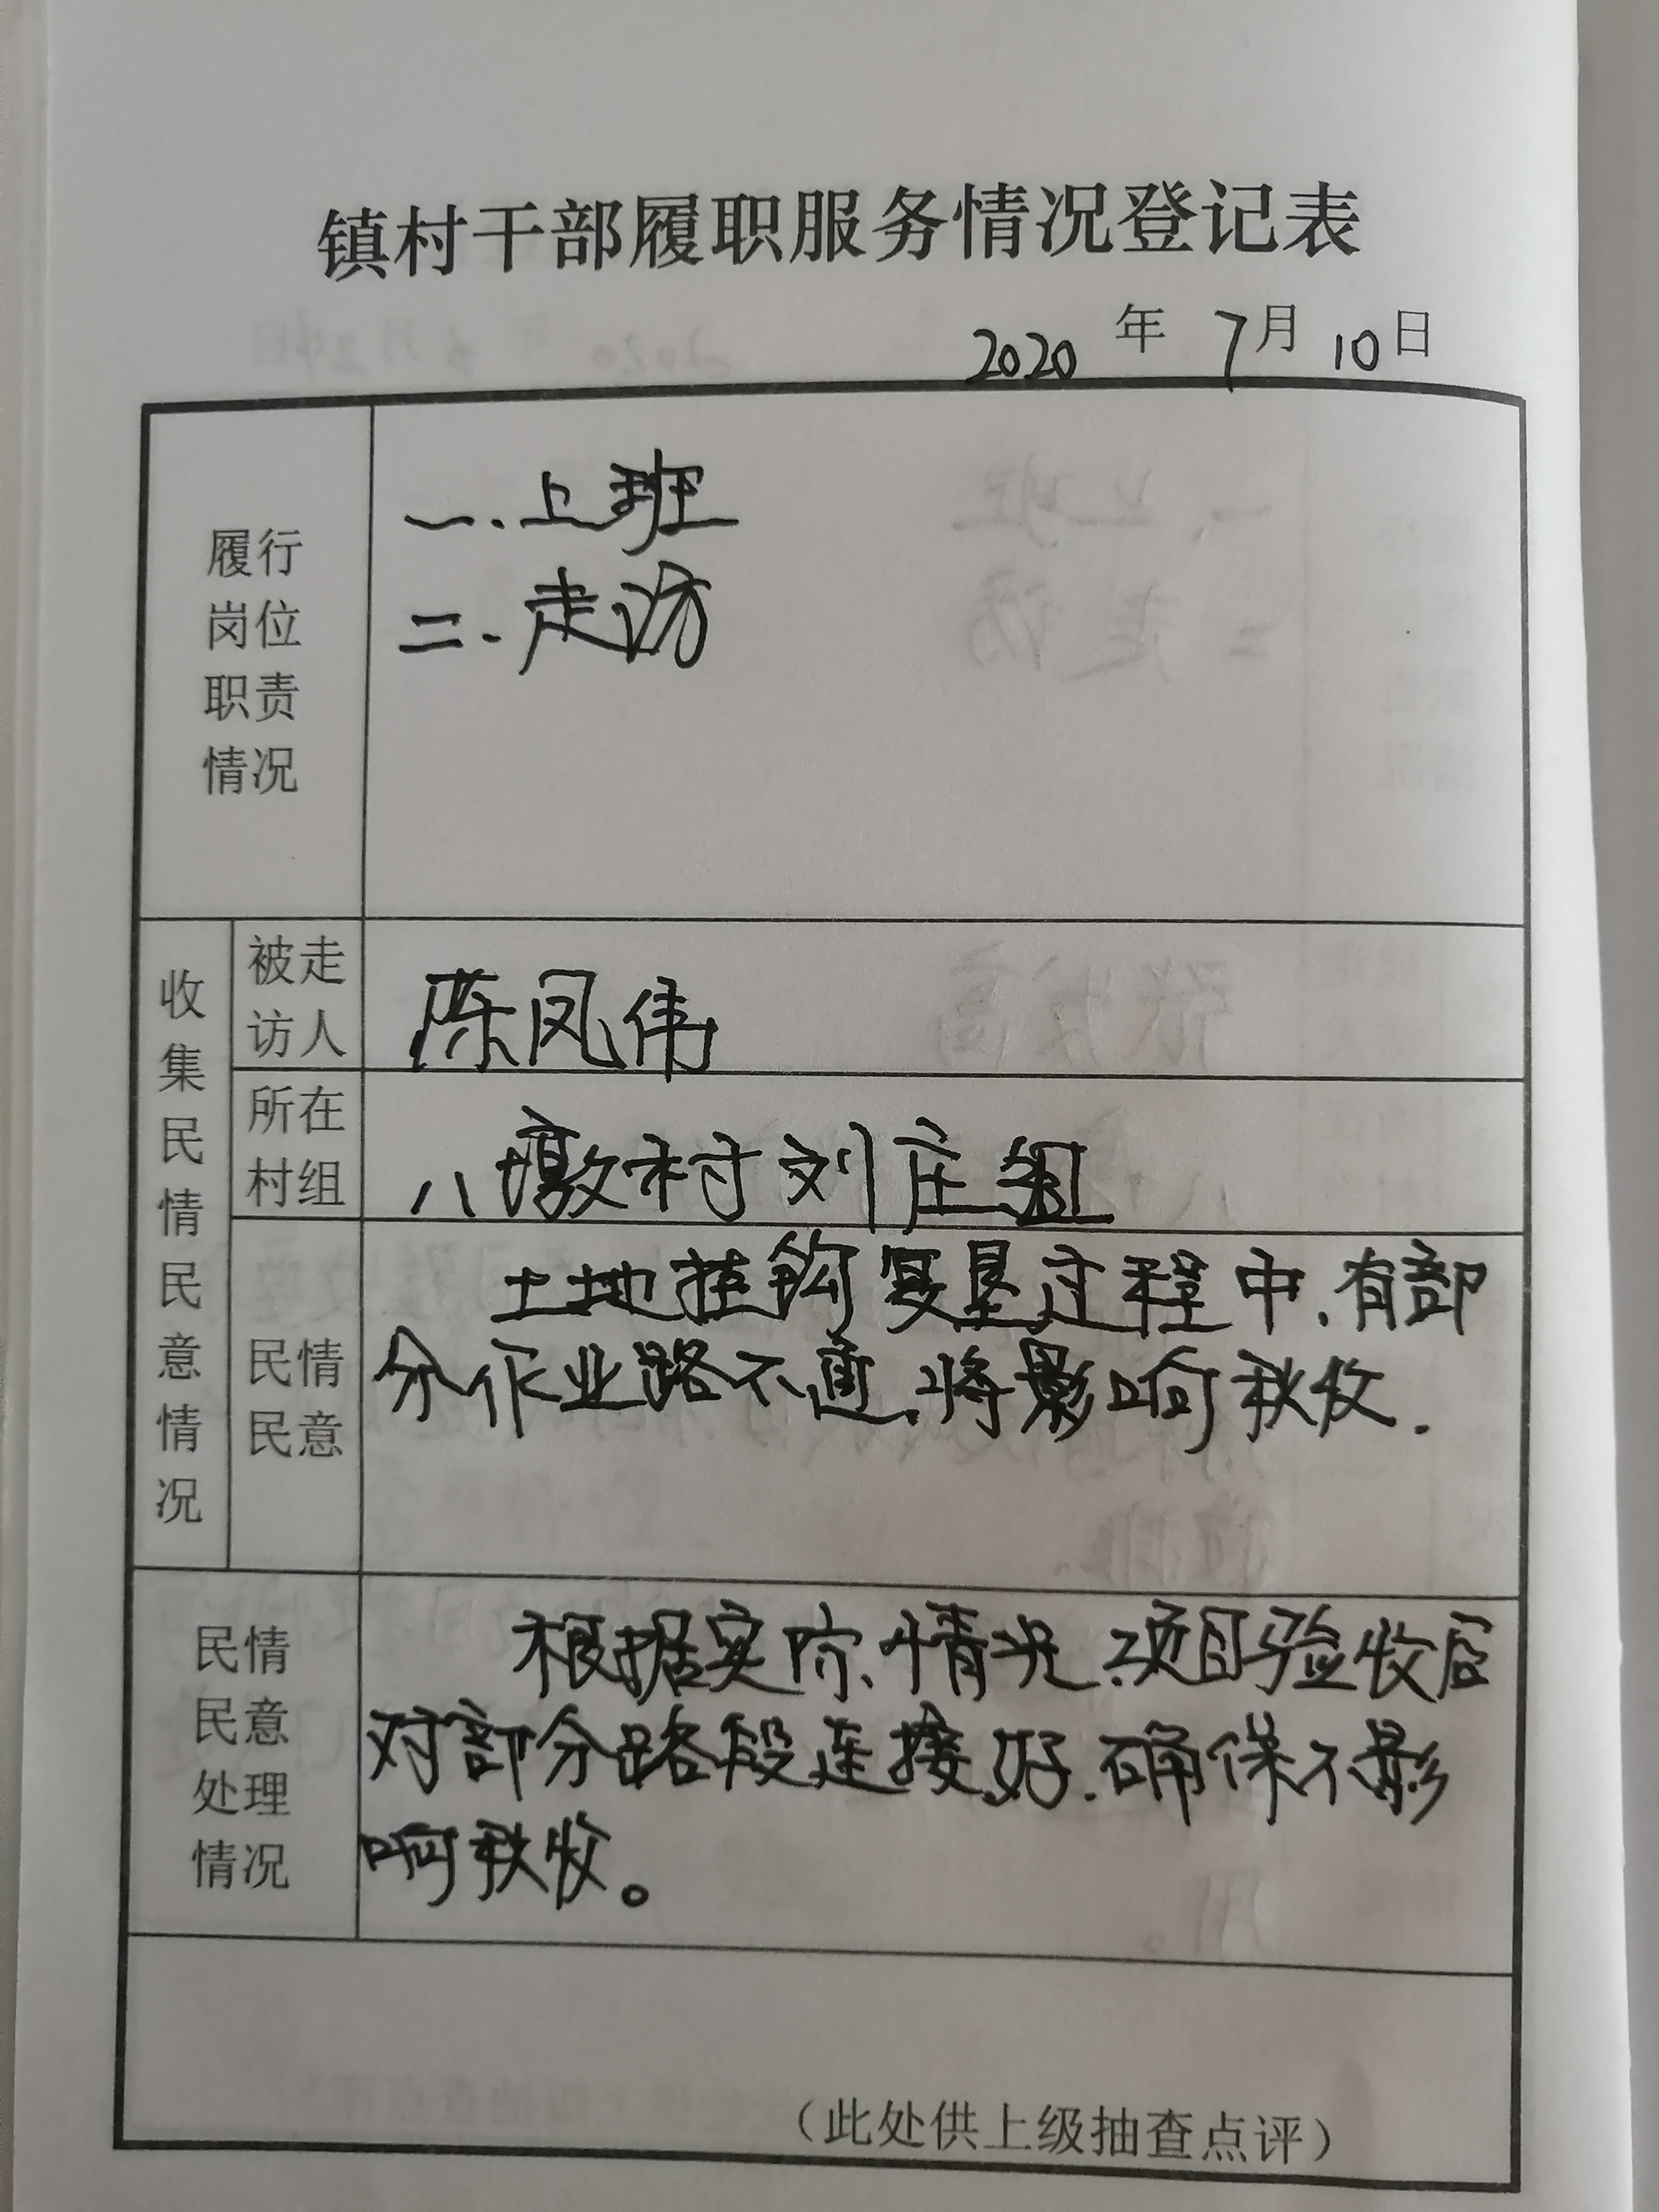 镇村干部履职服务情况登记表
2020 年 7月 10日
履行
岗位
职责
情况
一.上班
二.走访
收集民情民意情况
被走
访人
陈凤伟
所在
村组
八墩村刘庄组
民情
民意
土地挂钩复垦过程中.有部
分作业路不通.将影响秋收.
民情
民意
处理
情况
根据实际情况.项目验收后
对部分路段连接好.确保不影
响秋收。
（此处供上级抽查点评）